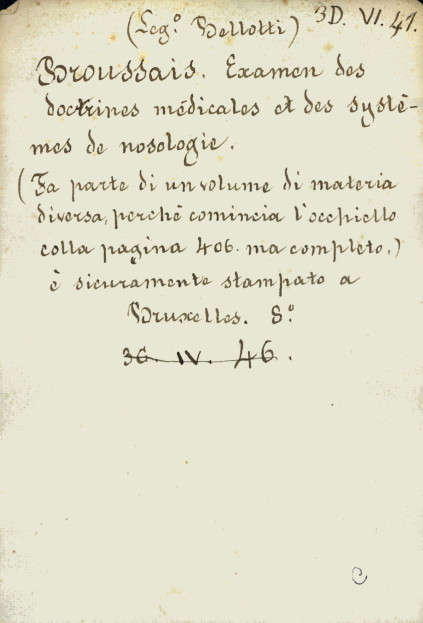 (Leg.° Bellotti) 3D. VI. 41.
Broussais. Examen des
doctrines médicales et des systê-
mes de nosologie.
(Fa parte di un volume di materia
diversa, perchè comincia l'occhiello
colla pagina 406. ma completo.)
è sicuramente stampato a
Bruxelles. 8.°
36. IV. 46.
C